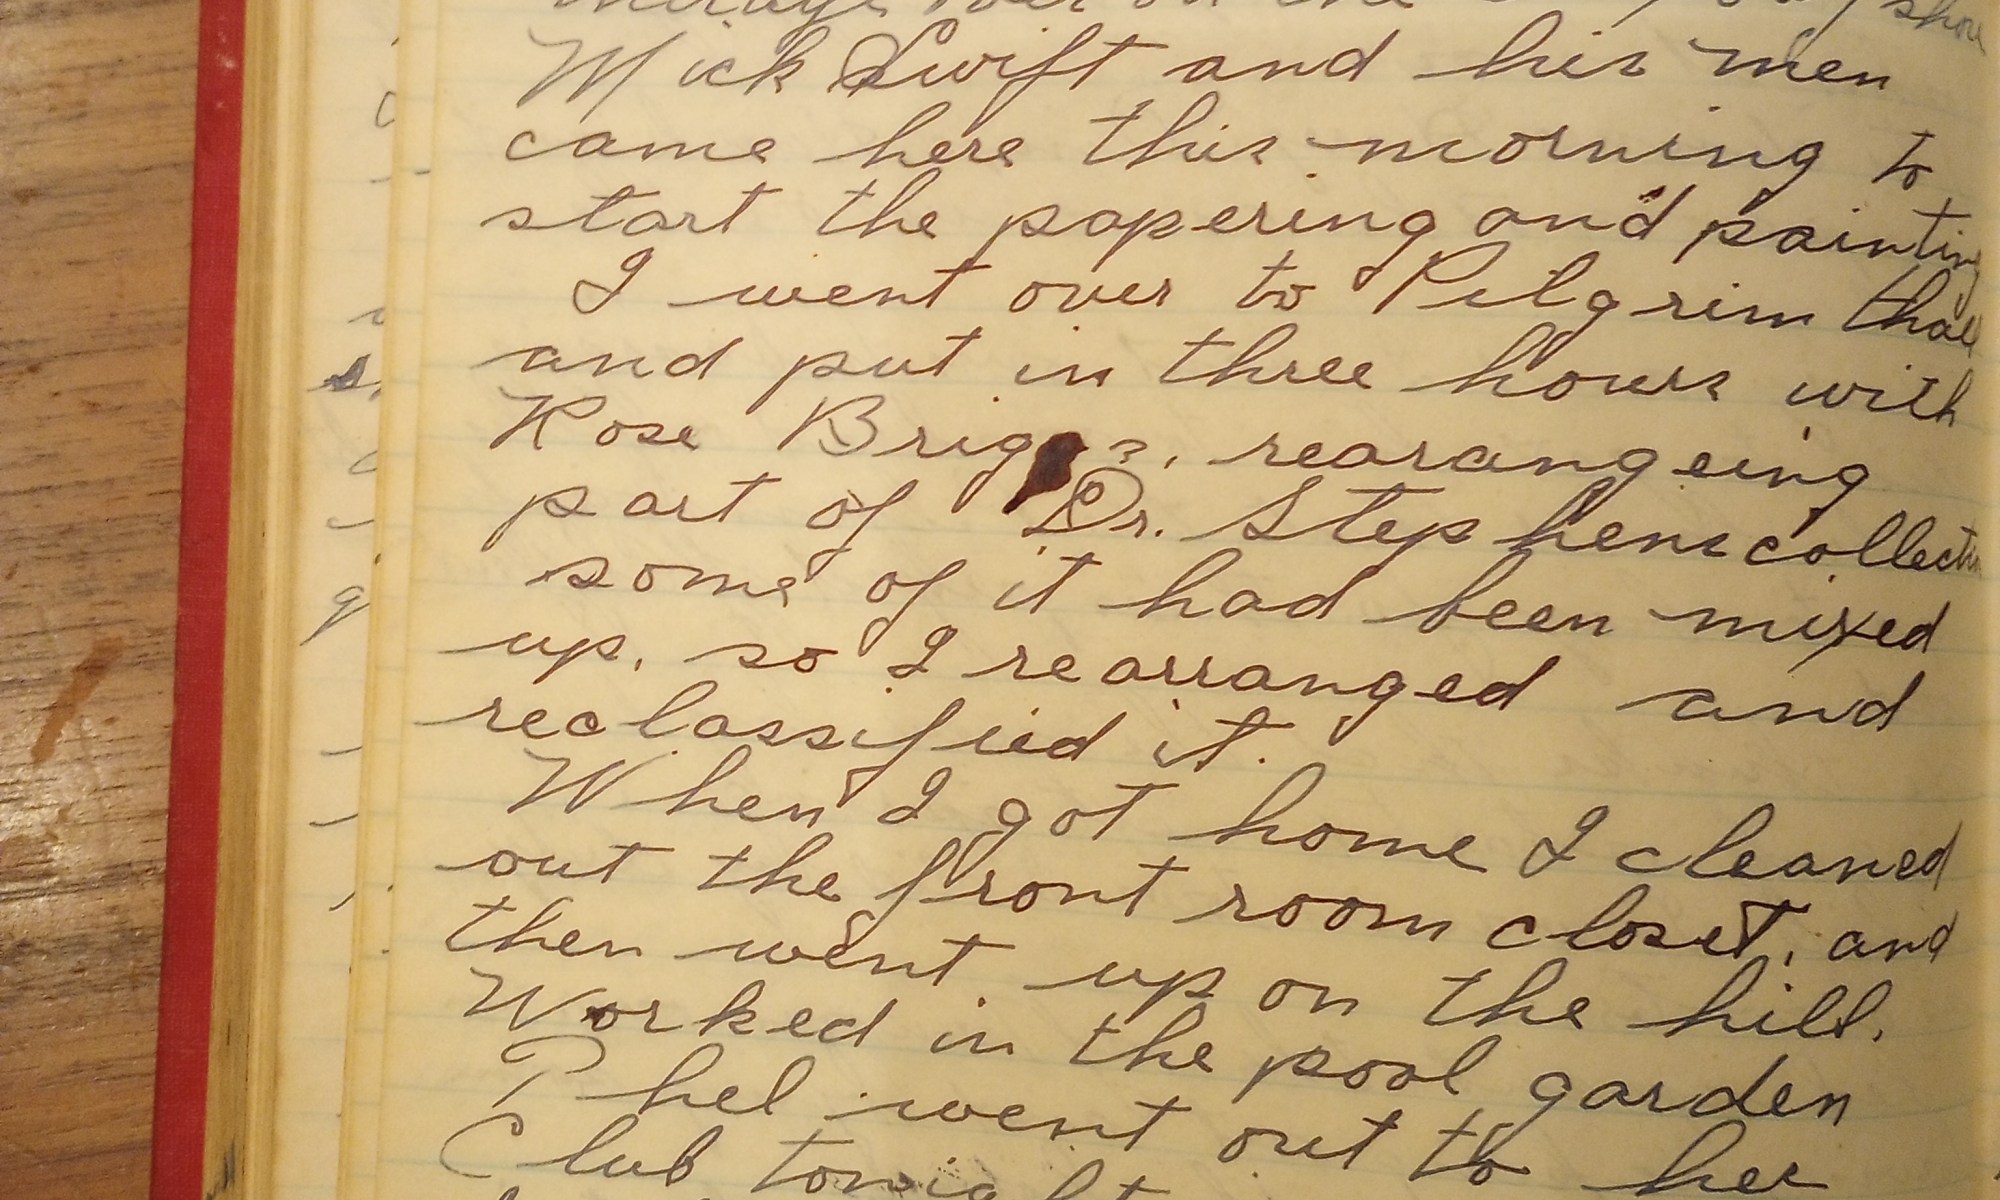 over on the
Mick Swift and his men
came here this morning to
start the papering and painting
I went over to Pilgrim Hall
and put in three hours with
Rose Briggs, rearangeing
part of Dr. Stephens collection
some of it had been mixed
up, so I rearranged and
reclassified it.
When I got home I cleaned
out the front room closet, and
then went up on the hill.
Worked in the pool garden
Phel went out to her
Club tonight